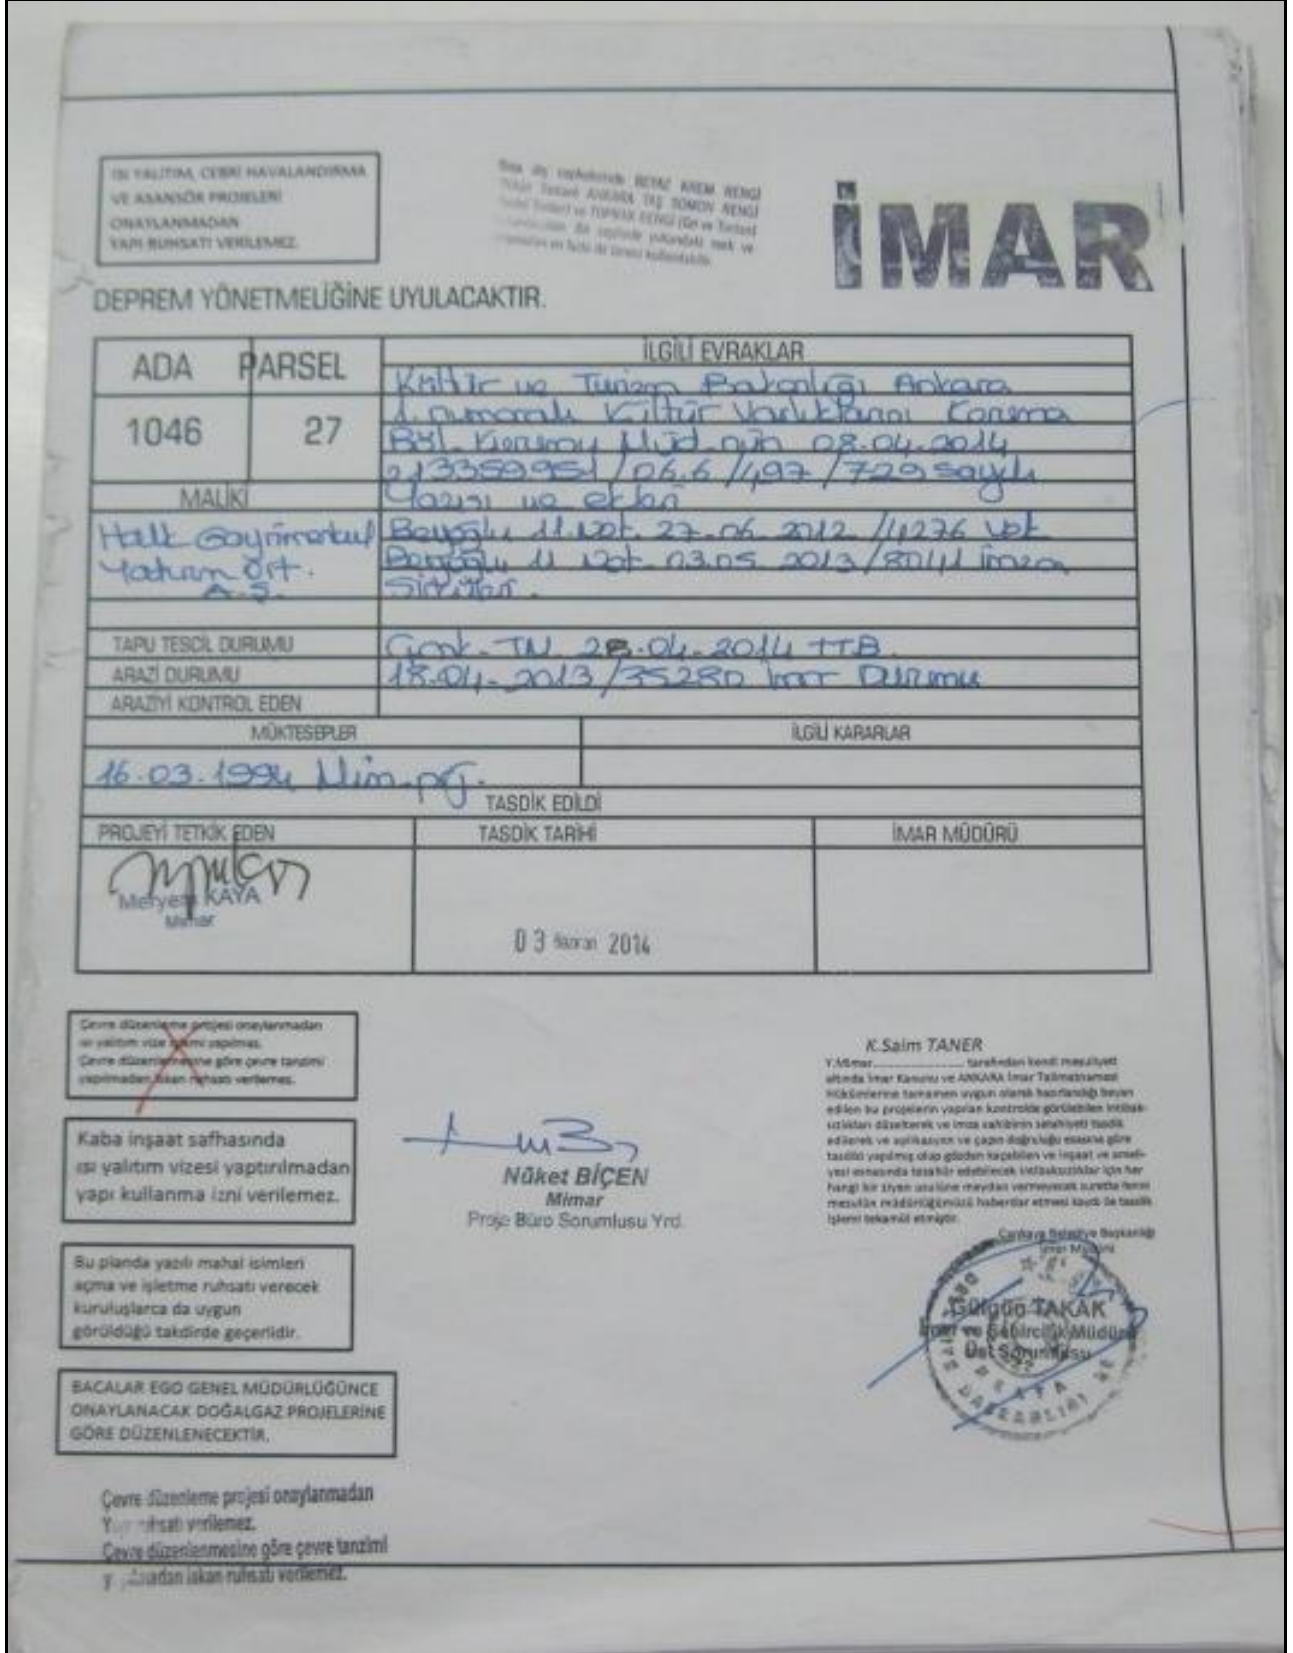 ISI YALITIM, CEBRİ HAVALANDIRMA
VE ASANSÖR PROJELERİ
ONAYLANMADAN
YAPI RUHSATI VERİLEMEZ.
BEYAZ KREM RENGİ
ANKARA TAŞ SOMON RENGİ
İMAR
DEPREM YÖNETMELİĞİNE UYULACAKTIR.
ADA PARSEL
1046 27
İLGİLİ EVRAKLAR
Kültür ve Turizm Bakanlığı Ankara
1 numaralı Kültür Varlıklarını Koruma
Böl. Müd.gün 08.04.2014
213359951/06.6/497/729 sayılı
Yazısı ve ekleri
MALİKİ
Halk Gayrimenkul
Yatırım Ort.
A.Ş.
Beyoğlu 11.Not. 27.06.2012/4276
Beyoğlu 11 Not. 03.05.2013/8044 İmza
Sirküleri.
TAPU TESCİL DURUMU
TN 28.04.2014 TTB.
ARAZİ DURUMU
18.04.2013/35280 İmar Durumu
ARAZİYİ KONTROL EDEN
MÜKTESEPLER İLGİLİ KARARLAR
16.03.1994 Mim.prj.
TASDİK EDİLDİ
PROJEYİ TETKİK EDEN TASDİK TARİHİ İMAR MÜDÜRÜ
Meryem KAYA
Mimar
03 Haziran 2014
Çevre düzenleme projesi onaylanmadan
ısı yalıtım vize işlemi yapılmaz.
Çevre düzenlemesine göre çevre tanzimi
yapılmadan iskan ruhsatı verilemez.
Kaba inşaat safhasında
ısı yalıtım vizesi yaptırılmadan
yapı kullanma izni verilemez.
Bu planda yazılı mahal isimleri
açma ve işletme ruhsatı verecek
kuruluşlarca da uygun
görüldüğü takdirde geçerlidir.
BACALAR EGO GENEL MÜDÜRLÜĞÜNCE
ONAYLANACAK DOĞALGAZ PROJELERİNE
GÖRE DÜZENLENECEKTİR.
Çevre düzenleme projesi onaylanmadan
verilemez.
Çevre düzenlenmesine göre çevre tanzimi
iskan ruhsatı verilemez.
Nüket BİÇEN
Mimar
Proje Büro Sorumlusu Yrd.
K.Saim TANER
Y.Mimar.................... tarafından kendi mesuliyeti
altında İmar Kanunu ve ANKARA İmar Talimatnamesi
Hükümlerine tamamen uygun olarak hazırlandığı beyan
edilen bu projelerin yapılan kontrolde görülebilen intibak-
sızlıkları düzelterek ve imza sahibinin selahiyeti tasdik
edilerek ve aplikasyon ve çapın doğruluğu esasına göre
tasdiki yapılmış olup gözden kaçabilen ve inşaat ve ameli-
yesi esnasında tezahür edebilecek intibaksızlıklar için her
hangi bir ziyan usulüne meydan vermeyecek surette fenni
mesulün müdürlüğümüzü haberdar etmesi kaydı ile tasdik
işlemi tekamül etmiştir.
Çankaya Belediye Başkanlığı
İmar Müdürü
Gülgün TAKAK
İmar ve Şehircilik Müdürü
Üst Sorumlusu